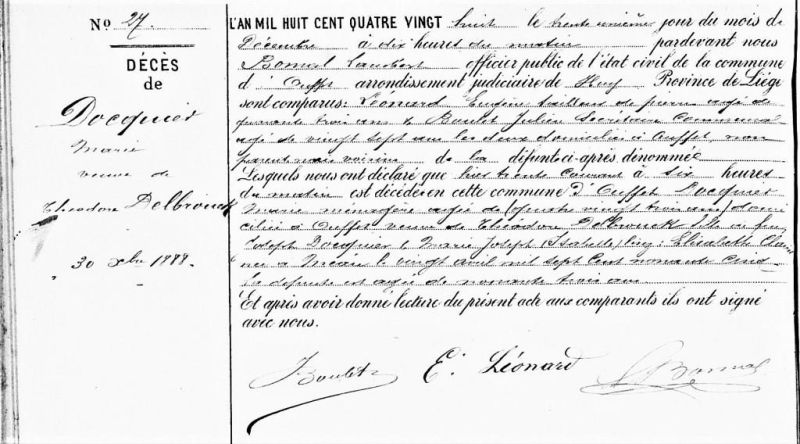 No 27
DÉCÈS
de
Docquier
Marie
veuve de
Théodore Delbrouck
30 Xbre 1888.
L'AN MIL HUIT CENT QUATRE VINGT huit le trente unième jour du mois de
Décembre à dix heures du matin pardevant nous
Bonmal Lambert officier public de l'état civil de la commune
d'Ouffet arrondissement judiciaire de Huy Province de Liége
sont comparus: Léonard Eugène tailleur de pierre agé de
quarante trois ans & Boulet Julien Secrétaire Communal
agé de vingt sept ans les deux domiciliés à Ouffet, non
parent mais voisins de la défunte ci-après dénommée
Lesquels nous ont déclaré que hier trente courant à six heures
du matin est décédée en cette commune d'Ouffet Docquier
Marie ménagère agée de (quatre vingt trois ans) domi
ciliée à Ouffet veuve de Théodore Delbrouck fille de feu
Joseph Docquier & Marie Joseph Elisabeth
née à le vingt avril mil sept cent nonante cinq
la défunte est agée de nonante trois ans
Et après avoir donné lecture du présent acte aux comparants ils ont signé
avec nous.
J Boulet E. Léonard L Bonmal